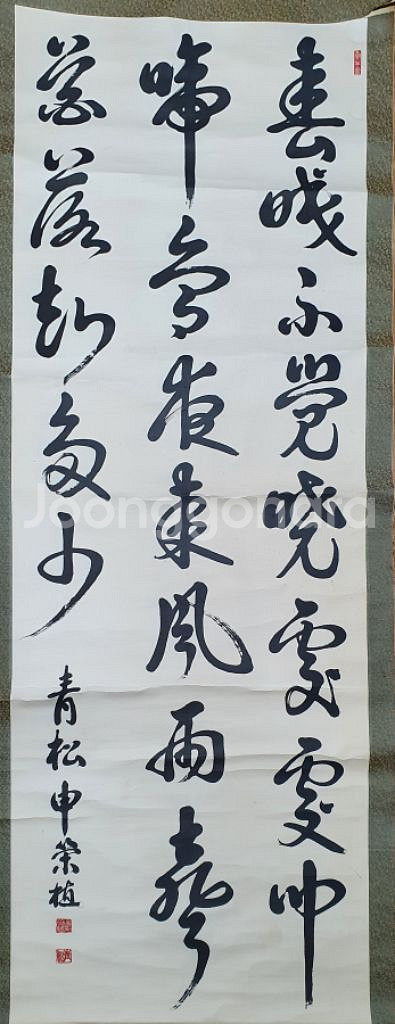 春眠不覺曉處處聞
啼鳥夜來風雨聲
花落知多少
青松申榮植
Joonggonara